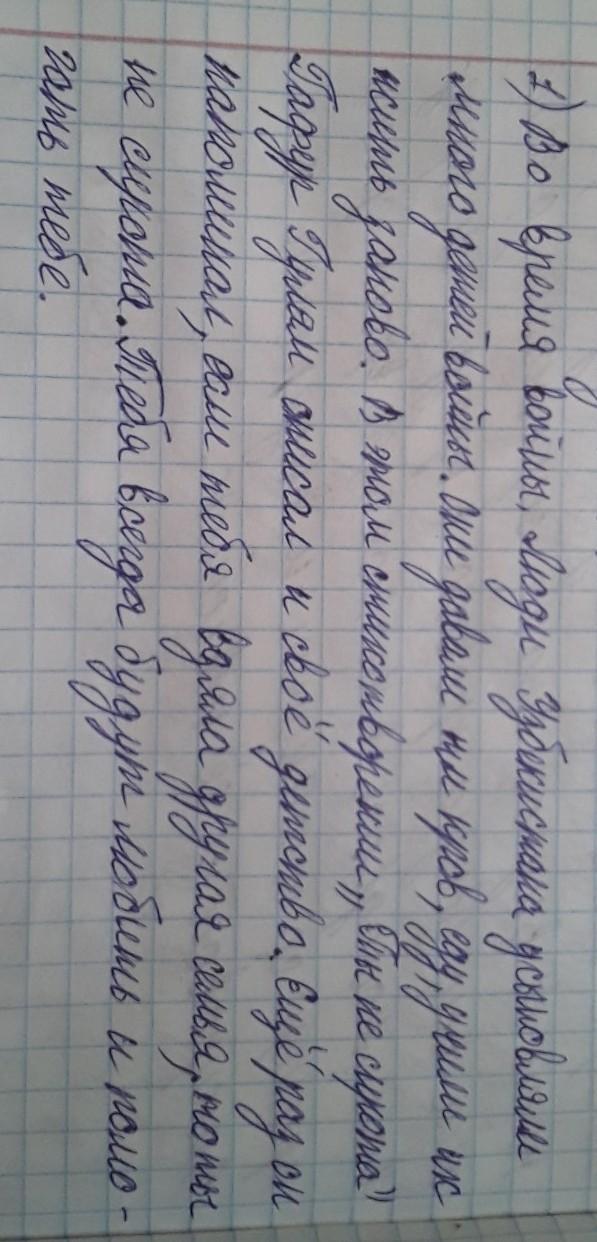 1) Во время войны, люди Узбекистана усыновляли
много детей войны. Они давали им кров, еду, учили их
жить заново. В этом стихотворении „Ты не сирота"
Гафур Гулям описал и своё детство. Ещё раз он
напомнил, если тебя взяла другая семья, то ты
не сирота. Тебя всегда будут любить и помо-
гать тебе.